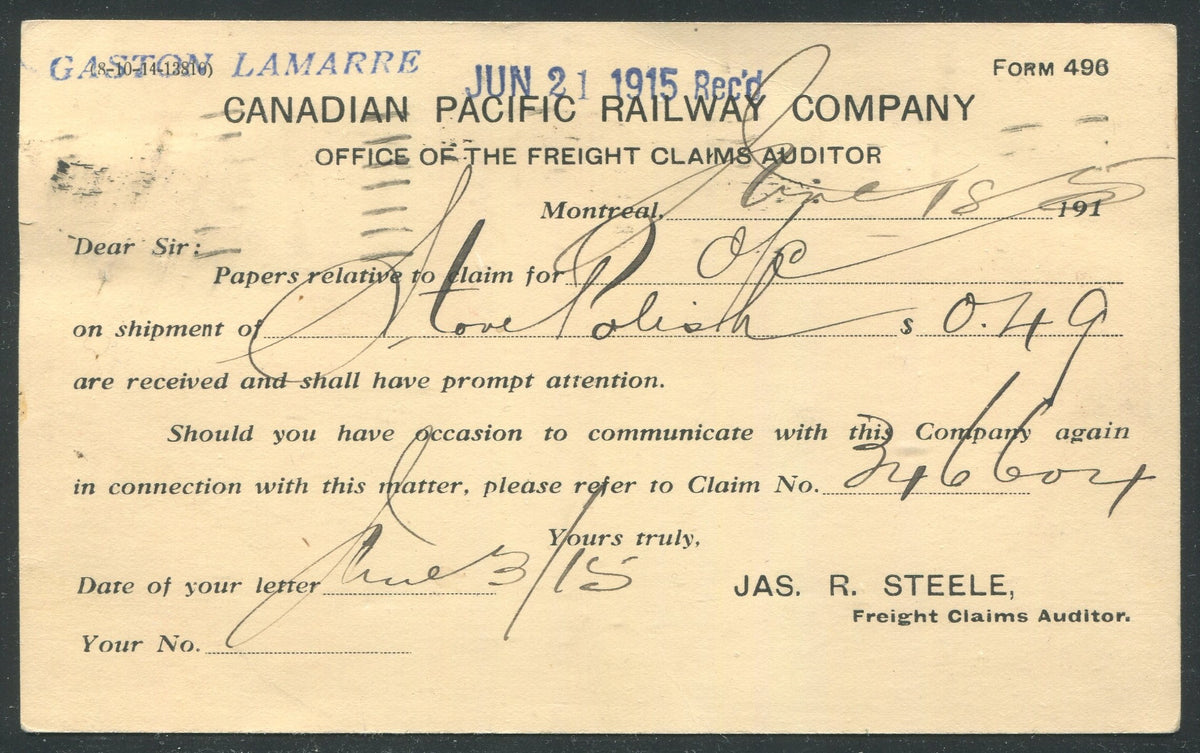 GASTON LAMARRE
(8-10-14-13810)
JUN 21 1915 Rec'd
FORM 496
CANADIAN PACIFIC RAILWAY COMPANY
OFFICE OF THE FREIGHT CLAIMS AUDITOR
Montreal, June 18 1915
Dear Sir:
Papers relative to claim for O/c
on shipment of Stove Polish $ 0.49
are received and shall have prompt attention.
Should you have occasion to communicate with this Company again
in connection with this matter, please refer to Claim No. 346604
Yours truly,
Date of your letter June 3/15
JAS. R. STEELE,
Freight Claims Auditor.
Your No.